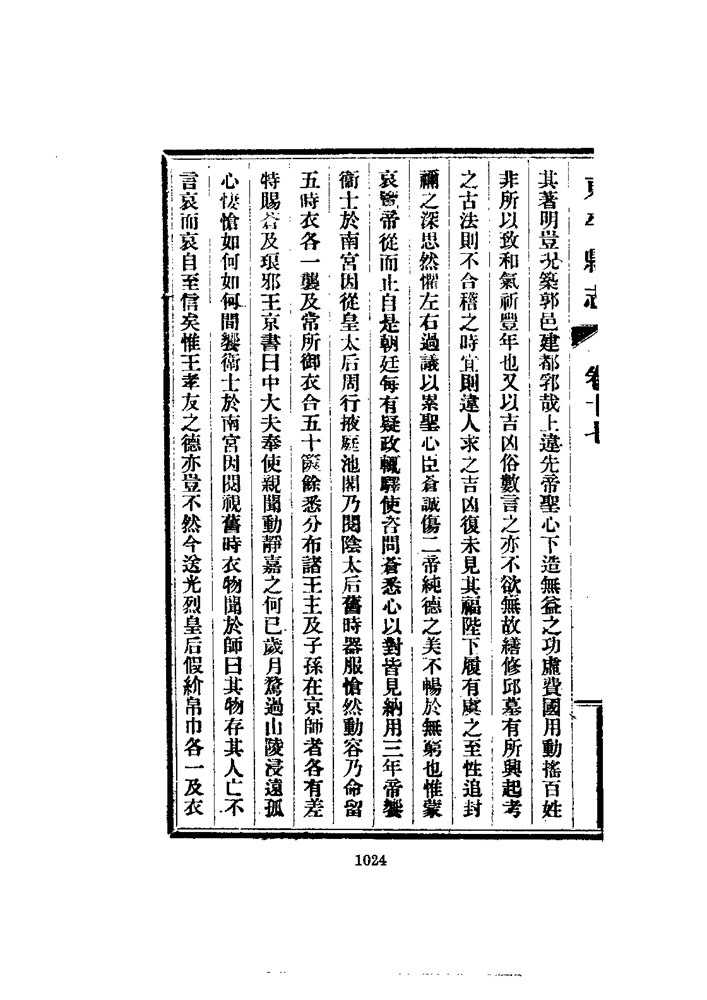 東平縣志 卷十七
其著明豈況築郭邑建都郛哉上違先帝聖心下造無益之功虛費國用動搖百姓
非所以致和氣祈豐年也又以吉凶俗數言之亦不欲無故繕修邱墓有所興起考
之古法則不合稽之時宜則違人求之吉凶復未見其福陛下履有虞之至性追封
禰之深思然懼左右過議以累聖心臣蒼誠傷二帝純德之美不暢於無窮也惟蒙
哀覽帝從而止自是朝廷每有疑政輒驛使咨問蒼悉心以對皆見納用三年帝饗
衞士於南宮因從皇太后周行掖庭池閣乃閱陰太后舊時器服愴然動容乃命留
五時衣各一襲及常所御衣合五十篋餘悉分布諸王主及子孫在京師者各有差
特賜蒼及琅邪王京書曰中大夫奉使親聞動靜嘉之何已歲月騖過山陵浸遠孤
心悽愴如何如何間饗衞士於南宮因閱視舊時衣物聞於師曰其物存其人亡不
言哀而哀自至信矣惟王孝友之德亦豈不然今送光烈皇后假紒帛巾各一及衣
1024